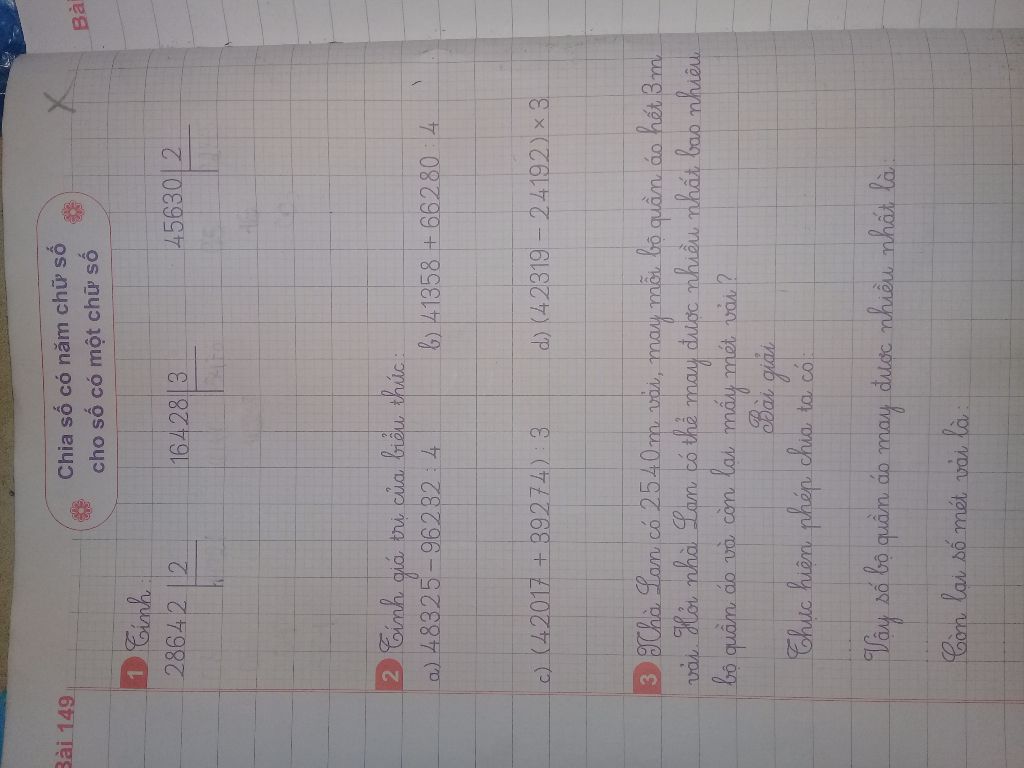 Bài 149
Chia số có năm chữ số
cho số có một chữ số
1 Tính:
28642 2
16428 3
45630 2
2 Tính giá trị của biểu thức:
a) 48325 - 96232 : 4
b) 41358 + 66280 : 4
c) (42017 + 39274) : 3
d) (42319 - 24192) × 3
3 Nhà Lan có 2540m vải, may mỗi bộ quần áo hết 3m
vải. Hỏi nhà Lan có thể may được nhiều nhất bao nhiêu
bộ quần áo và còn lại mấy mét vải?
Bài giải
Thực hiện phép chia ta có:
Vậy số bộ quần áo may được nhiều nhất là:
Còn lại số mét vải là:
Bài